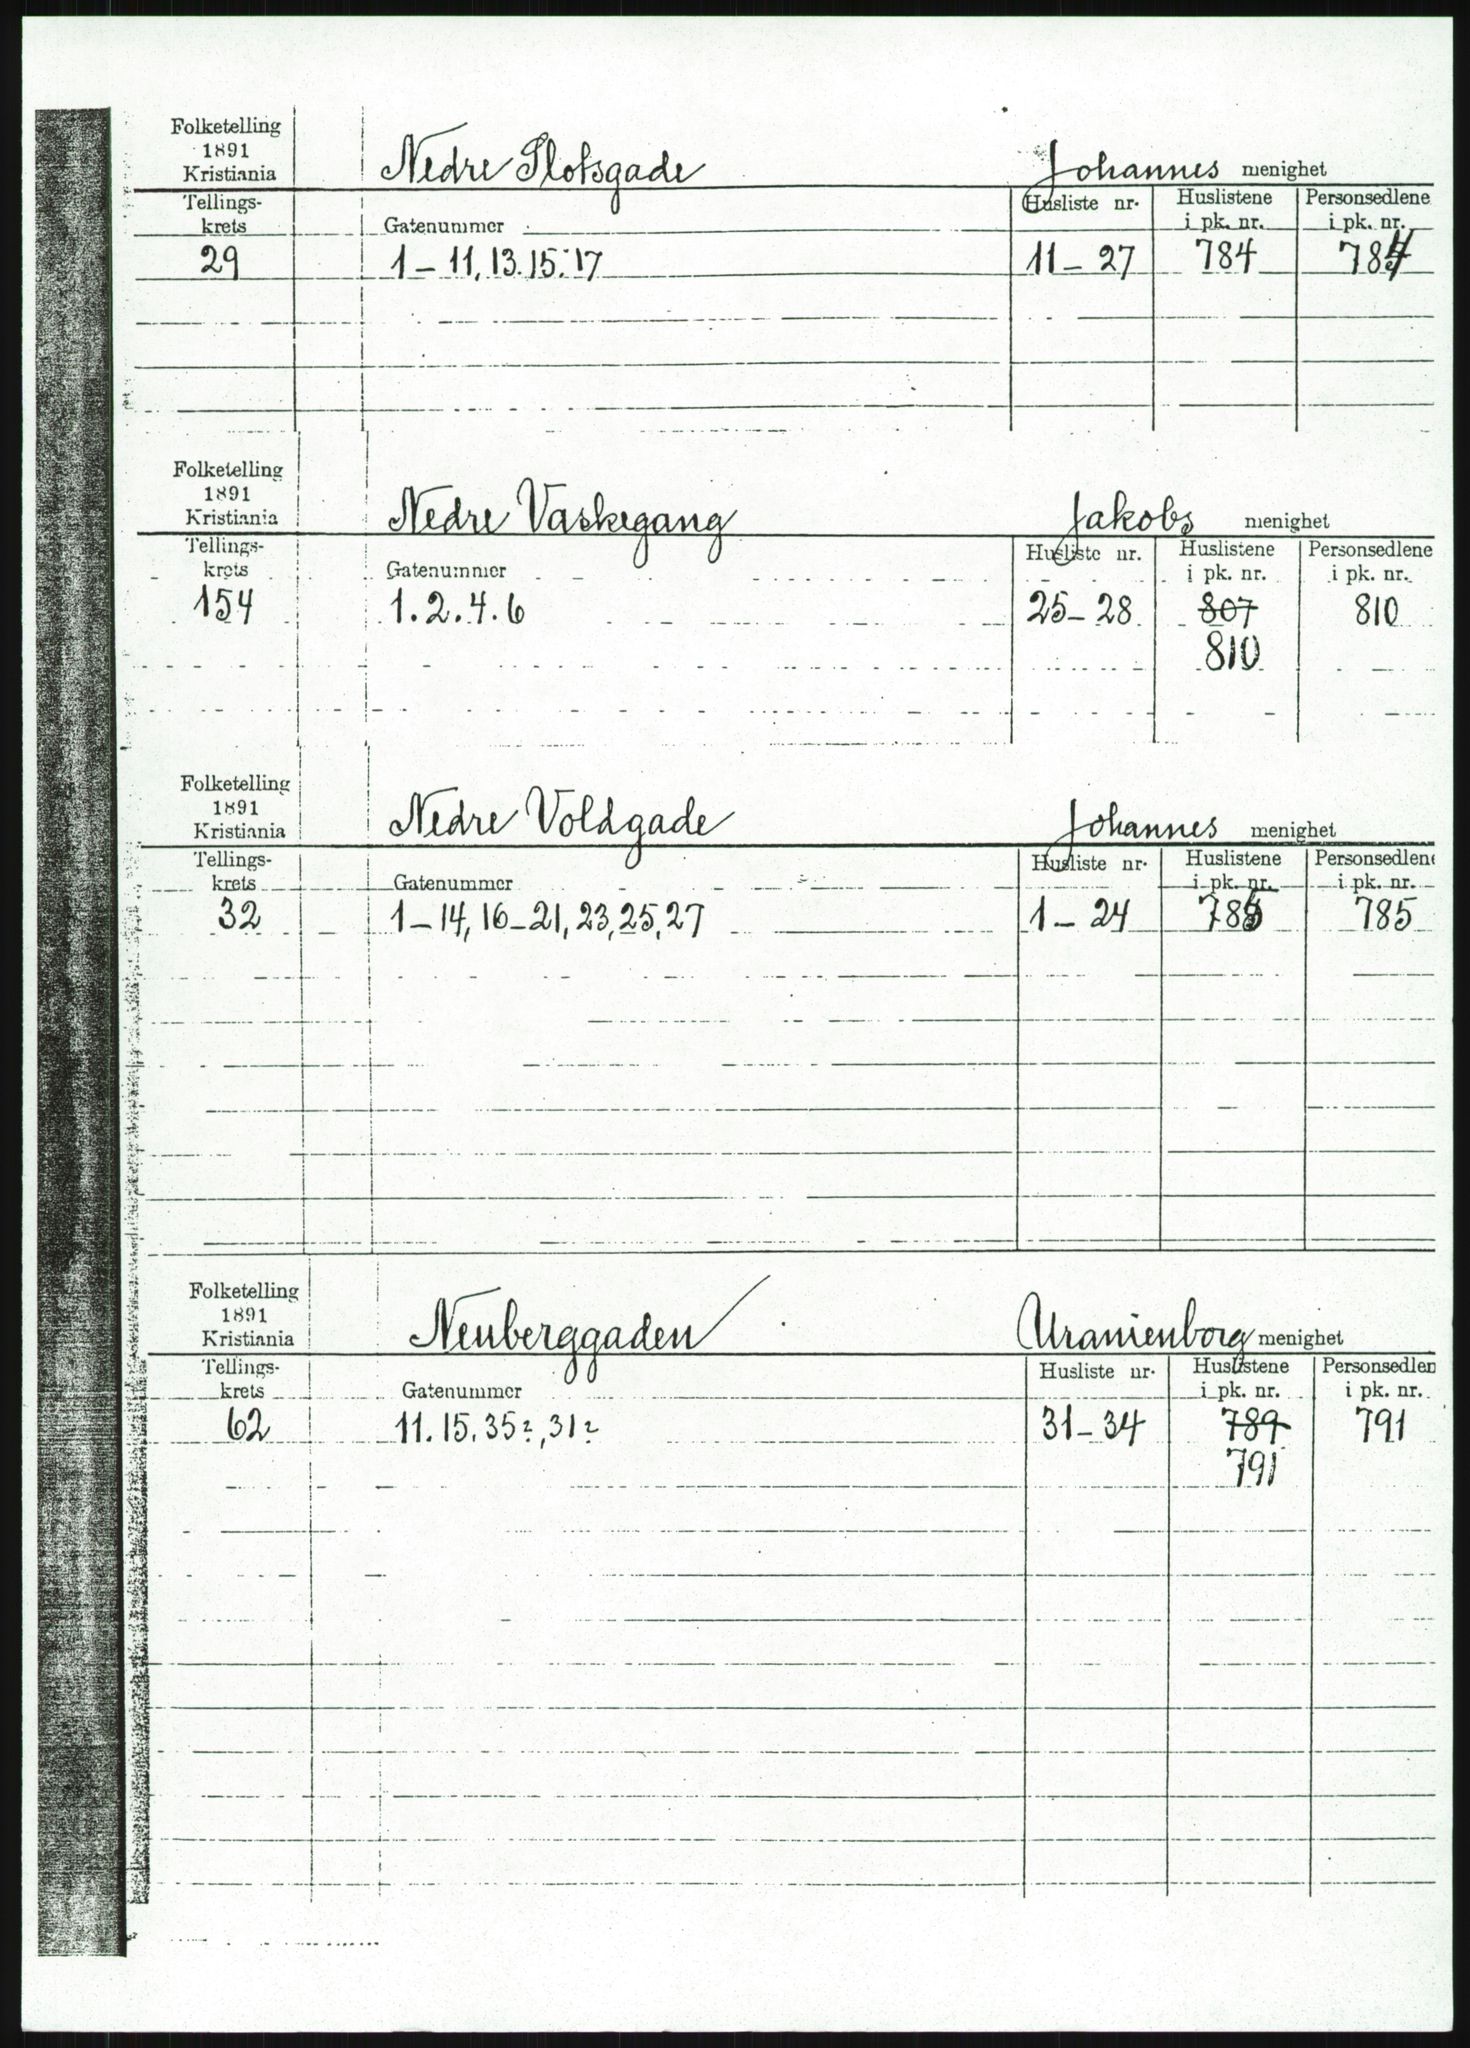 Folketelling
1891
Kristiania
Nedre Slotsgade Johannes menighet
Tellings-
krets Gatenummer Husliste nr. Huslistene i pk. nr. Personsedlene i pk. nr.
29 1 – 11, 13. 15. 17 11 – 27 784 784
Folketelling
1891
Kristiania
Nedre Vaskegang Jakobs menighet
Tellings-
krets Gatenummer Husliste nr. Huslistene i pk. nr. Personsedlene i pk. nr.
154 1. 2. 4. 6 25 – 28 807 810
810
Folketelling
1891
Kristiania
Nedre Voldgade Johannes menighet
Tellings-
krets Gatenummer Husliste nr. Huslistene i pk. nr. Personsedlene i pk. nr.
32 1 – 14, 16 – 21, 23, 25, 27 1 – 24 785 785
Folketelling
1891
Kristiania
Neuberggaden Uranienborg menighet
Tellings-
krets Gatenummer Husliste nr. Huslistene i pk. nr. Personsedlen i pk. nr.
62 11. 15. 35?, 31? 31 – 34 789 791
791